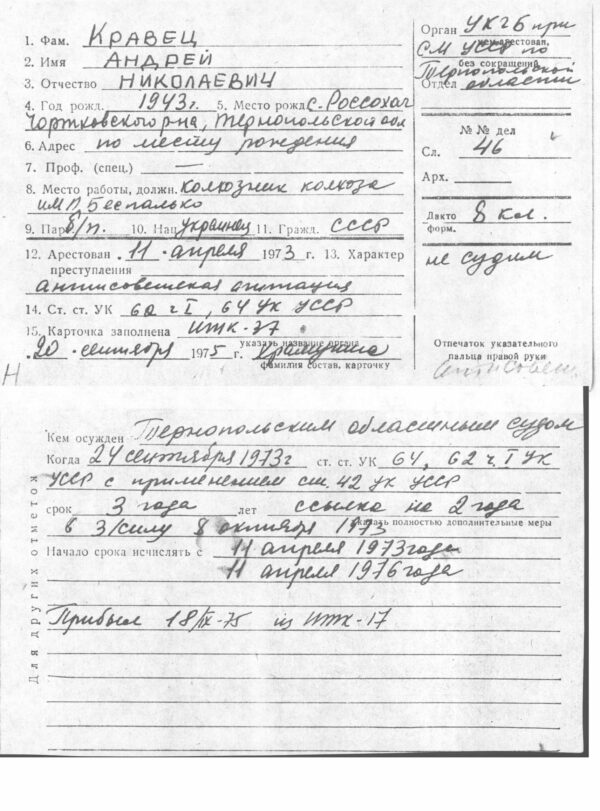 1. Фам. КРАВЕЦ
2. Имя АНДРЕЙ
3. Отчество НИКОЛАЕВИЧ
4. Год рожд. 1943 г. 5. Место рожд. с. Россохач
Чортковского р-на, Тернопольской обл
6. Адрес по месту рождения
7. Проф. (спец.) —
8. Место работы, должн. колхозник колхоза
им П. Беспалько
9. Парт. б/п. 10. Нац. украинец 11. Гражд. СССР
12. Арестован 11 апреля 1973 г. 13. Характер
преступления
антисоветская агитация
14. Ст. ст. УК 62 ч I, 64 УК УССР
15. Карточка заполнена ИТК-37
указать название органа
20 сентября 1975 г.
фамилия состав. карточку
Н
Орган УКГБ при
кем арестован,
СМ УССР по
без сокращений
Тернопольской
Отдел области
№ № дел
Сл. 46
Арх.
Дакто 8 кл.
форм.
не судим
Отпечаток указательного
пальца правой руки
антисовет.
Кем осужден Тернопольским областным судом
Когда 24 сентября 1973 г ст. ст. УК 64, 62 ч. I УК
УССР с применением ст. 42 УК УССР
срок 3 года лет ссылка на 2 года
указать полностью дополнительные меры
в з/силу 8 октября 1973
Начало срока исчислять с 11 апреля 1973 года
11 апреля 1976 года
Прибыл 18/IX-75 из ИТК-17
Для других отметок